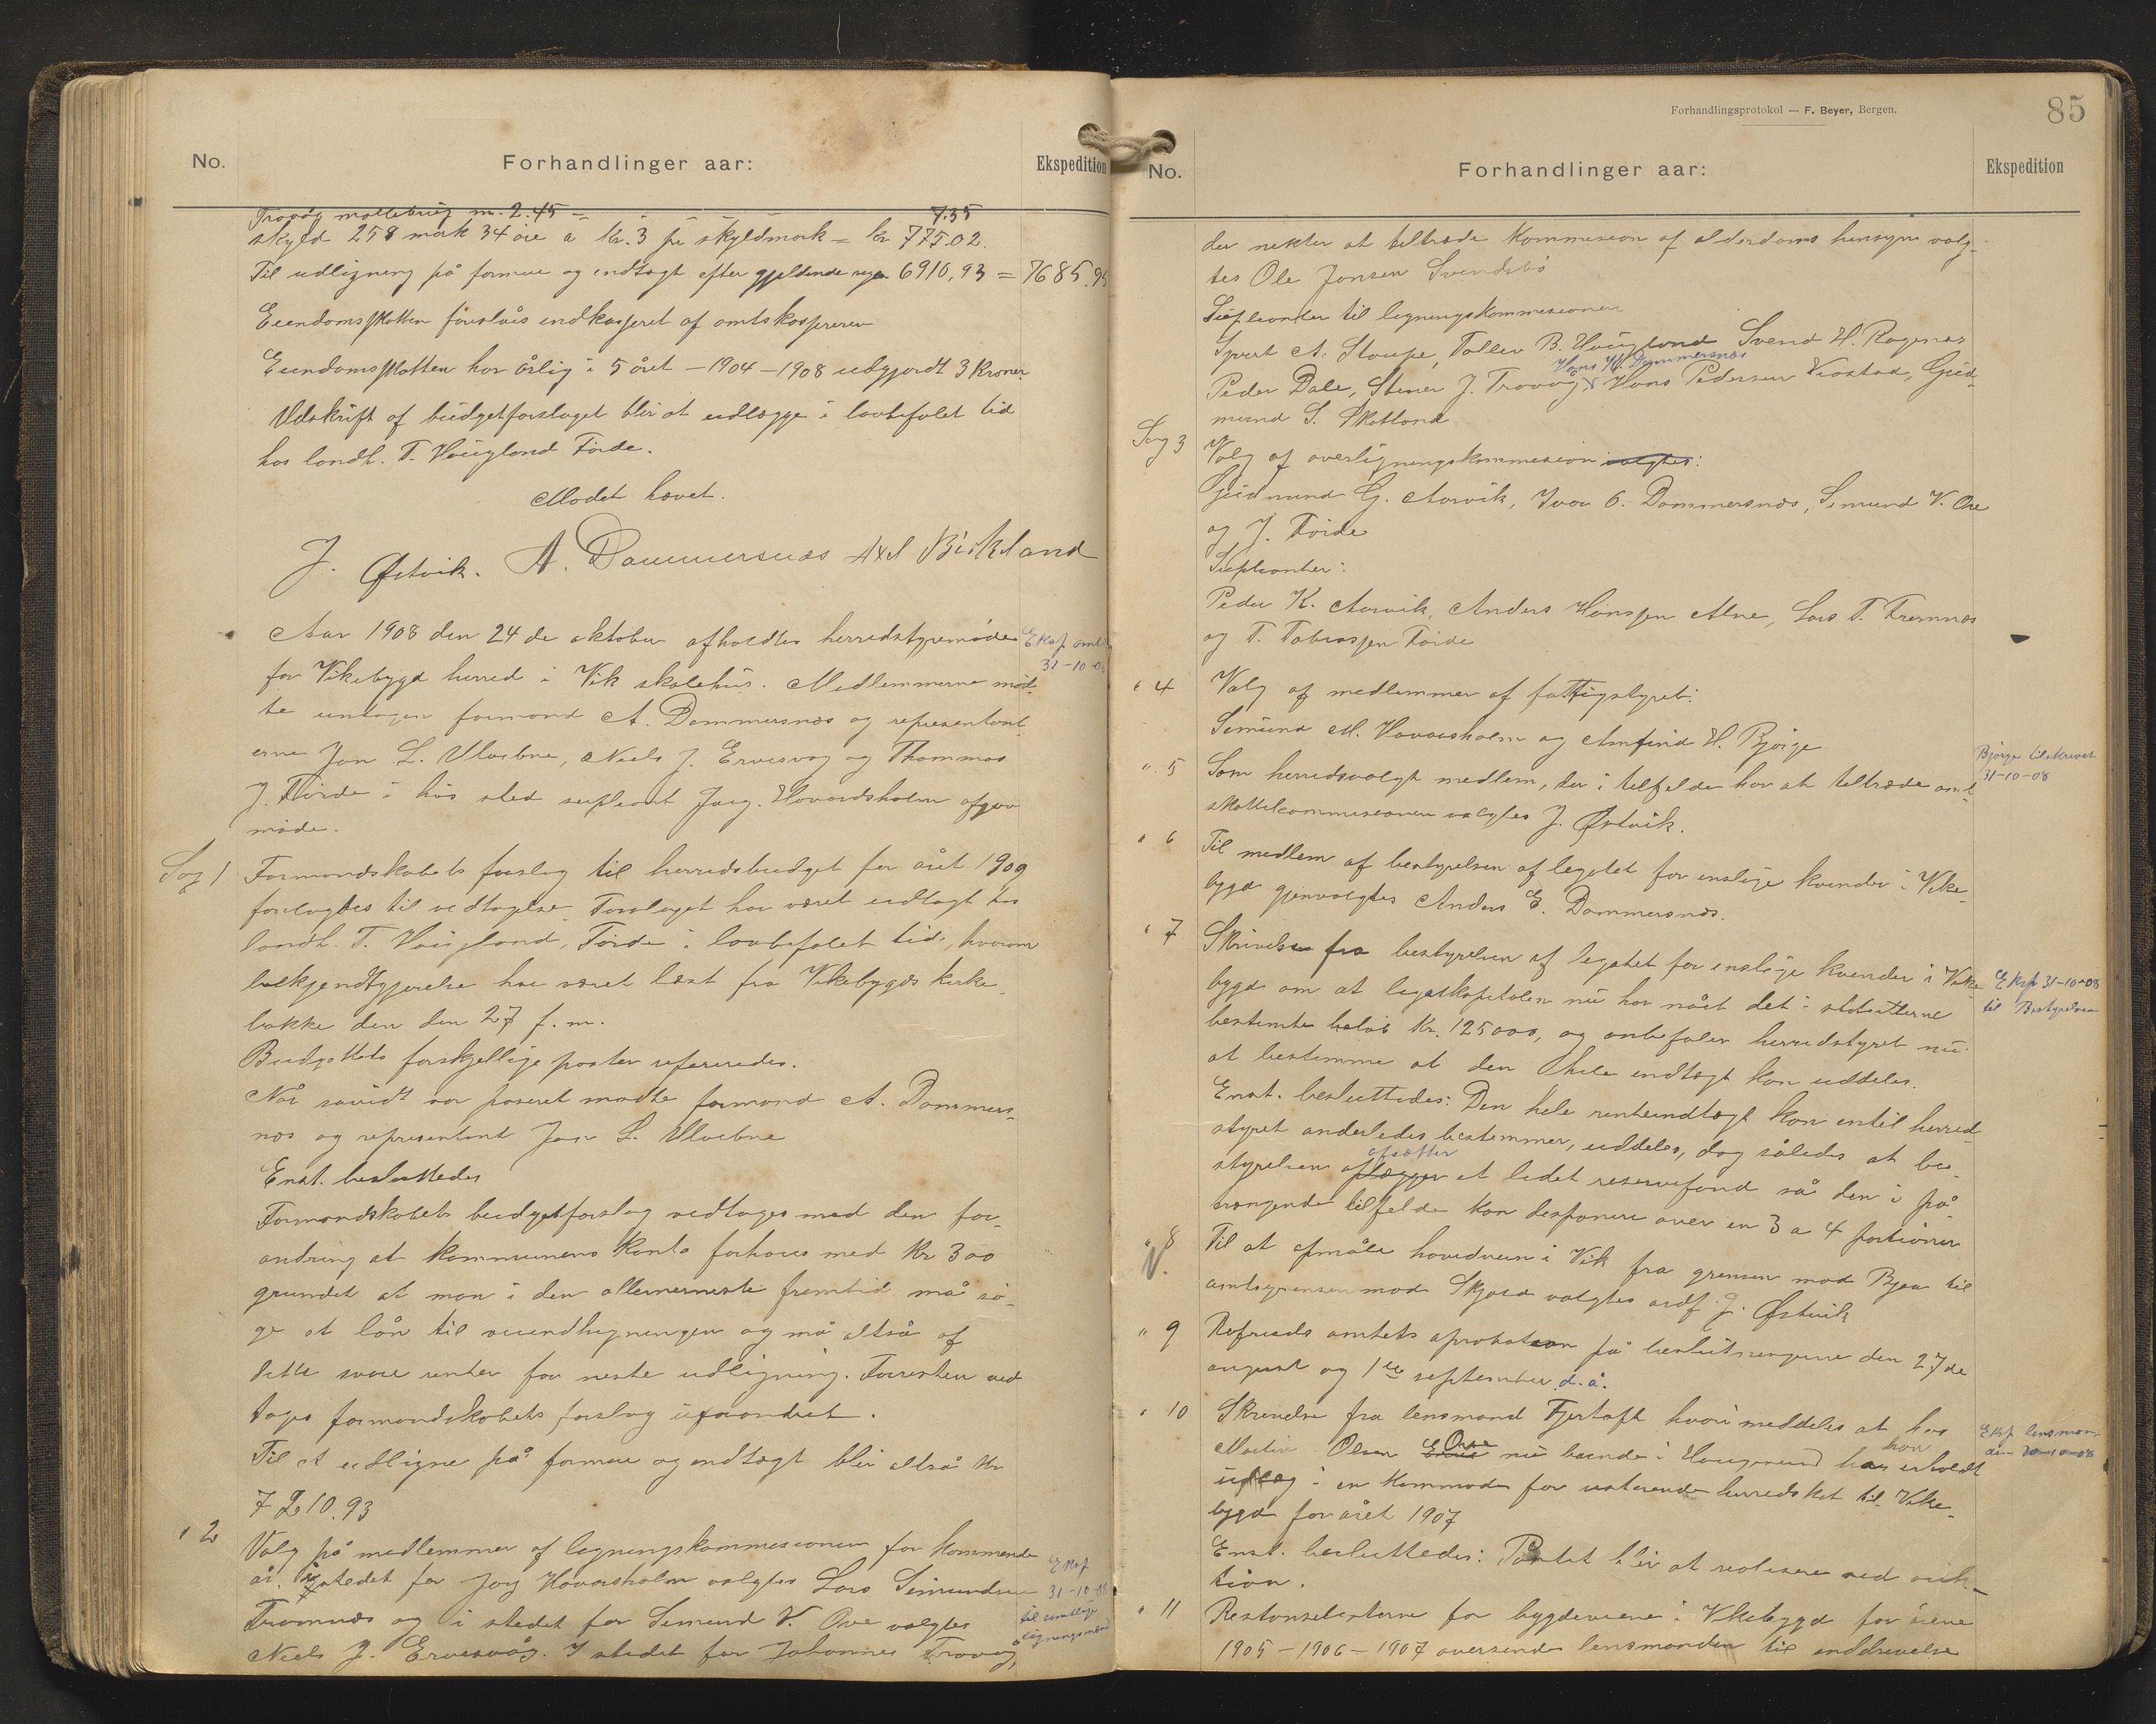 No.
Forhandlinger aar:
Ekspedition
Trovåg møllebrug m. 2.45 – 7.35
skyld 258 mark 34 øre a kr. 3 pr skyldmark = kr 775.02.
Til udligning på formue og indtægt efter gjeldende regler 6910,93 = 7685.95
Eiendomsskatten foreslåes indkasseret af amtskassereren
Eiendomsskatten har årlig i 5 året – 1904 – 1908 udgjordt 3 Kroner.
Udskrift af budgetforslaget blir at udlægge i lovbefalet tid
hos landh. T. Haugland Førde.
Mødet hævet.
J. Østvik. A. Dommersnæs Axel Birkland
Aar 1908 den 24 de oktober afholdtes herredstyremøde
Eksp amt
31-10-08
for Vikebygd herred i Vik skolehus. Medlemmerne mød-
te untagen formand A. Dommersnæs og representant
erne Jon L. Ulvebne, Niels J. Ervesvåg og Thommas
J. Førde i hvis sted supleant Jørg. Hovardsholm afgav
møde.
Sag 1
Formandskabets forslag til herredsbudget for året 1909
forelagdes til vedtagelse. Forslaget har været udlagt hos
landh. T. Haugland, Førde i lovbefalet tid, hvorom
bekjendtgjørelse har været læst fra Vikebygds kirke-
bakke den den 27 f. m.
Budgettets forskjellige poster refereredes.
Når såvidt var paseret mødte formand A. Dommers-
næs og representant Jon L. Ulvebne
Enst. besluttedes
Formandskabets budgetforslag vedtages med den for-
andring at kommunens konto forhøies med kr 300
grundet at man i den allernermeste fremtid må sø-
ge et lån til veiendhegningen og må altså af
dette svare renter før neste udligning. Forresten ved
tages formandskabets forslag uforandret.
Til at udligne på formue og indtægt blir altså kr
7210.93
" 2
Valg på medlemmer af ligningskommesionen for kommende
år. I stedet for Jørg Hovarsholm valgtes Lars Simundsen
Fromnæs og i stedet for Simund V. Øve valgtes
Niels J. Ervesvåg. I stedet for Johannes Trovåg,
Eksp
31-10-08
til samtlige
ligningsmænd
Forhandlingsprotokol — F. Beyer, Bergen.
85
No.
Forhandlinger aar:
Ekspedition
der nekter at tiltræde Kommesion af alderdoms hensyn valg-
tes Ole Jonsen Svendsbø
Supleanter til ligningskommesionen
Sjurt A. Stoupe, Tollev B. Haugland Svend H. Røgenæs
Hans H. Dommersnæs
Peder Dale, Stener J. Trovåg, Hans Pedersen Viastad, Gud-
mund S. Skatland
Sag 3
Valg af overligningskommesion valgtes:
Gudmund G. Aarvik, Ivar O. Dommersnæs, Simund V. Øve
og J. Førde
Supleanter:
Peder K. Aarvik, Anders Hanssen Alne, Lars T. Fremnæs
og T. Tobiassen Førde
" 4
Valg af medlemmer af fattigstyret:
Simund M. Hovarsholm og Amfind H. Bjørge
Bjørge tilskrevet
31-10-08
" 5
Som herredsvalgt medlem, der i tilfelde har at tiltræde amt
skattekommesionen valgtes J. Østvik.
" 6
Til medlem af bestyrelsen af legatet for enslige kvinder i Vike-
bygd gjenvalgtes Anders E. Dommersnæs.
" 7
Skrivelse fra bestyrelsen af legatet for enslige kvinder i Vike-
Eksp 31-10-08
til Bestyrelsen
bygd om at legatkapitalen nu har nået det i statutterne
bestemte beløb kr. 125000, og anbefaler herredstyret nu
at bestemme at den hele indtægt kan uddeles.
Enst. besluttedes: Den hele renteindtægt kan intil herred-
styret anderledes bestemmer, uddeles, dog således at be-
afsætter
styrelsen aflægger et lidet reservefond så den i på-
trængende tilfelde kan desponere over en 3 a 4 portioner
" 8
V.
Til at opmåle hovedveien i Vik fra grensen mod Bjoa til
amtsgrensen mod Skjold valgtes ordf. J. Østvik
" 9
Referedes amtets aprobation på beslutningerne den 27de
august og 1ste september d. å.
" 10
Skrivelse fra lensmand Fjertoft hvori meddeles at hos
Martin Olsen Øve nu boende i Haugesund har han erholdt
Eksp lensman-
den 30-10-08
udlæg i en kommode for resterende herredskat til Vike-
bygd for året 1907
Enst. besluttedes: Pantet blir at realisere ved auk-
tion.
" 11
Restanselisterne for bygdeveiene i Vikebygd for årene
1905 – 1906 – 1907 oversendes lensmanden til inddrivelse